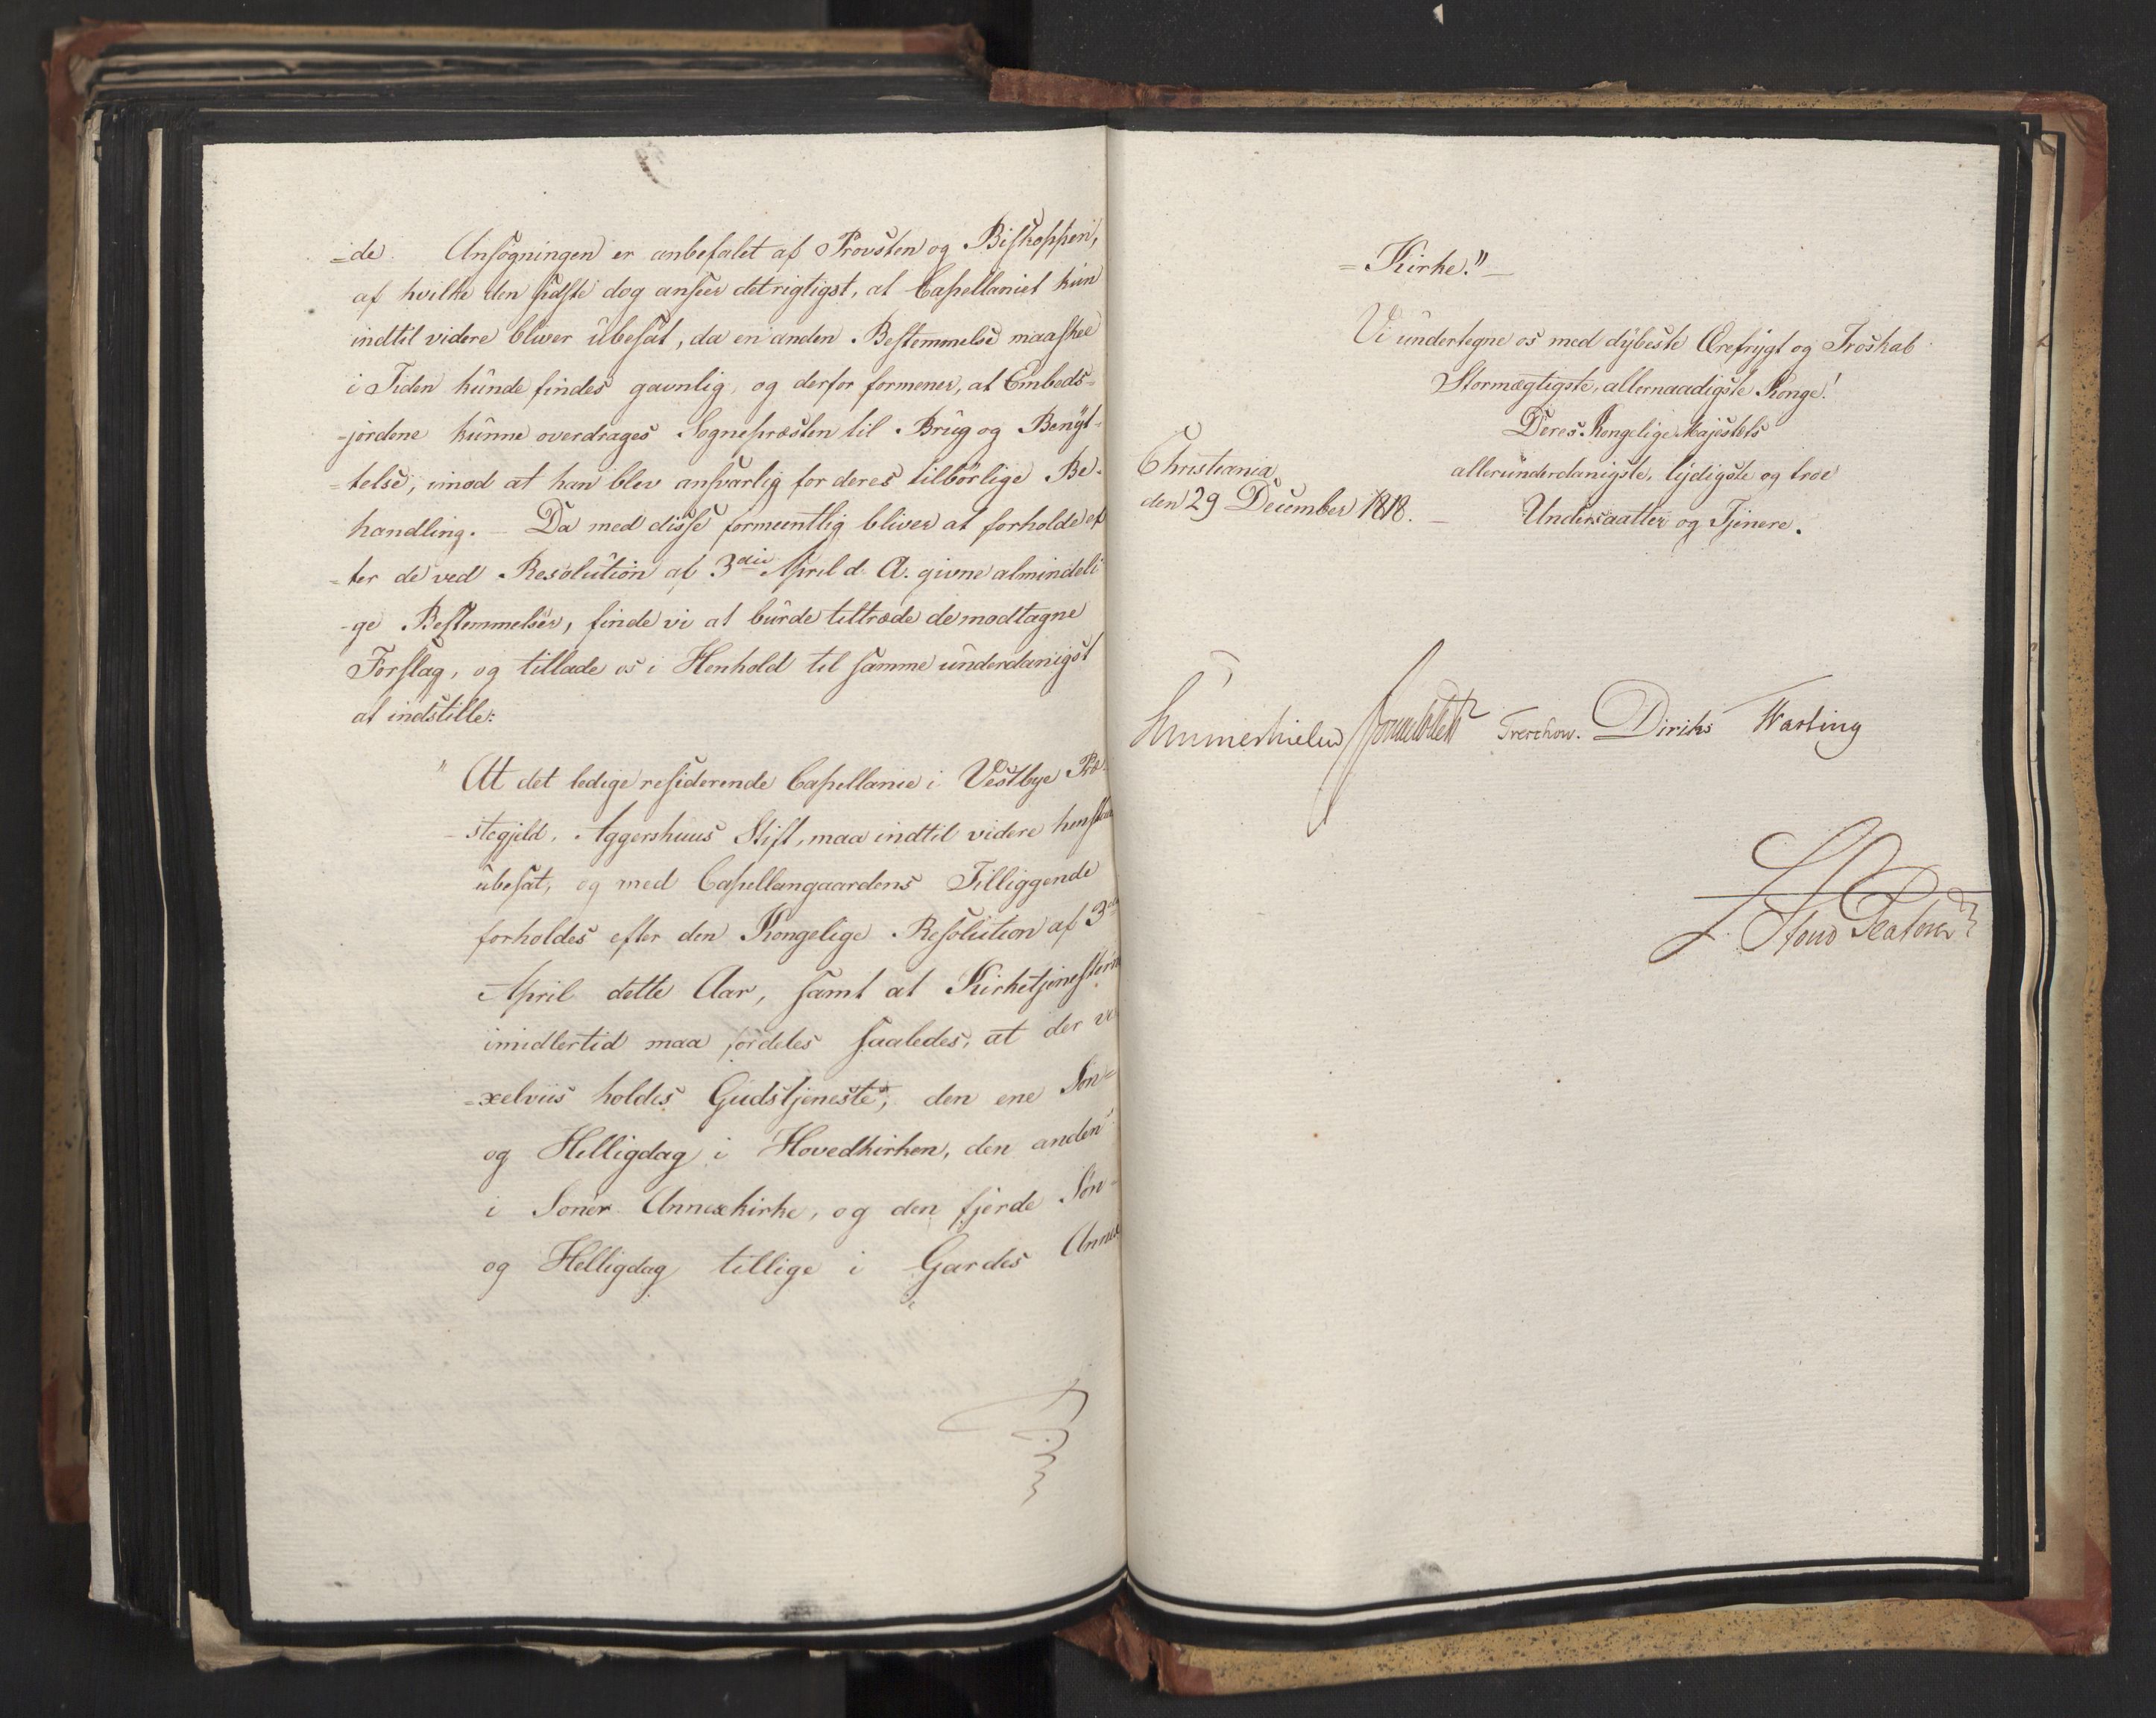 -de. Ansøgningen er anbefalet af Provsten og Biskoppen,
af hvilke den sidste dog anseer det rigtigst, at Capellaniet kun
indtil videre bliver ubesat, da en anden Bestemmelse maaskee
i Tiden kunde findes gavnlig, og derfor formener, at Embeds-
-jordene kunne overdrages Sognepræsten til Brug og Benyt-
-telse, imod at han blev ansvarlig for deres tilbørlige Be-
handling. — Da med disse formeentlig bliver at forholde ef-
-ter de ved Resolution af 3die April d. A. givne almindeli-
-ge Bestemmelser, finde vi at burde tiltræde de modtagne
Forslag, og tillade os i Henhold til samme underdanigst
at indstille:
" At det ledige residerende Capellanie i Vestbye Præ-
-stegjeld, Aggershuus Stift, maa indtil videre henstaae
ubesat, og med Capellangaardens Tilliggende
forholdes efter den Kongelige Resolution af 3die
April dette Aar, samt at Kirketjenesten
imidlertid maa fordeles saaledes, at der ve-
-xelviis holdes Gudstjeneste, den ene Søn-
og Helligdag i Hovedkirken, den anden
i Soner Annexkirke, og den fjerde Søn-
og Helligdag tillige i Garder Annex
= Kirke." —
Vi undertegne os med dybeste Ærefrygt og Troskab
Stormægtigste, allernaadigste Konge!
Deres Kongelige Majestets
allerunderdanigste, lydigste og troe
Undersaatter og Tjenere.
Christiania
den 29 December 1818. —
Hummerhielm Sommerfeldt Treschow. Diriks Wasting